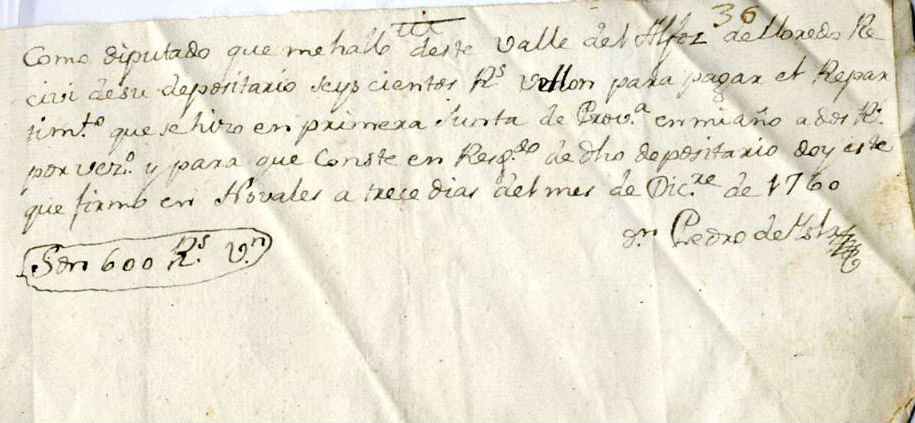 36
Como diputado que me hallo deste valle del Alfoz de lloredo Re
civi de su depositario seys cientos Rs. Vellon para pagar el Repar
timto. que se hizo en primera Junta de Prova. en mi año a dos Rs.
por vezo. y para que Conste en Resgdo. de dho depositario doy este
que firmo en Novales a trece dias del mes de Dicre. de 1760
Son 600 Rs. Vn.
Dn Pedro de